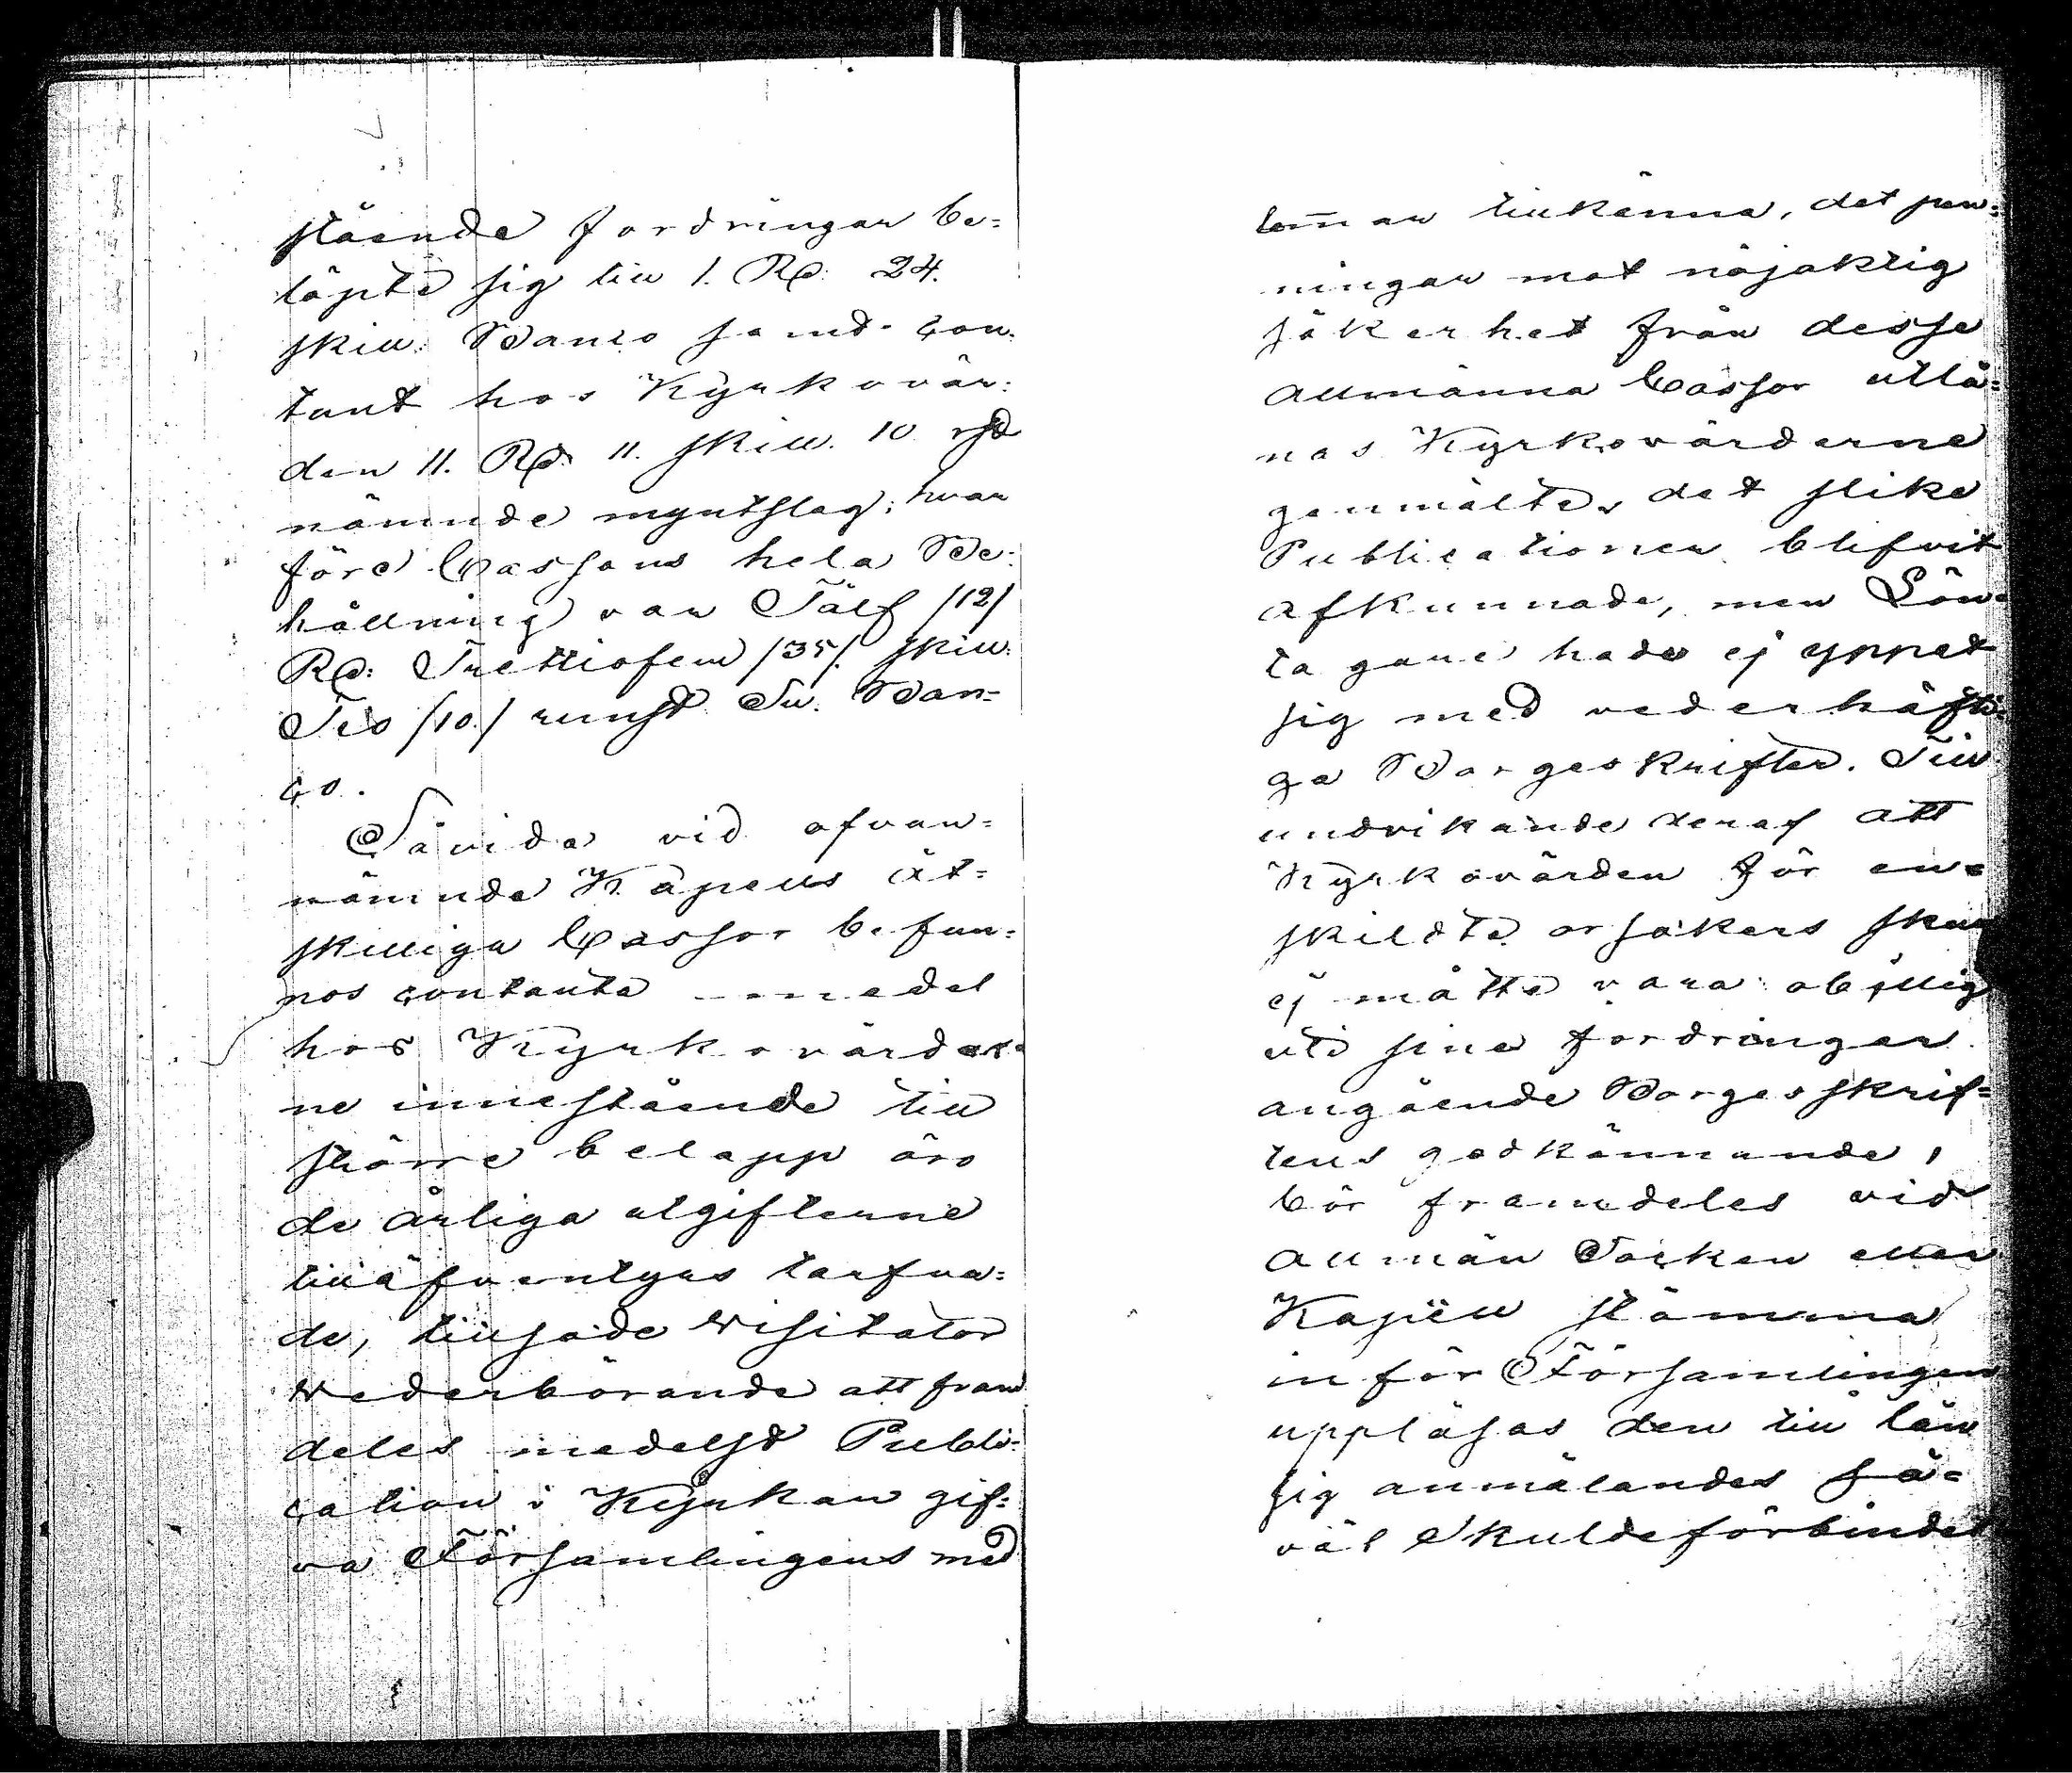 stående fordringar be=
löpte sig till 1. Rd: 24.
skill: Banco samt con=
tant hos Kyrkovär=
den 11. Rd: 11. skill. 10 rst
nämnde myntslag; hvar
före Cassans hela Be=
hållning var Tålf /12/
Rd: Trettiofem /35/. skill:
Tio /10./ runst. Sv. Ban=
co.
Såvida vid ofvan=
nämnde Kapells åt=
skilliga Cassor befun=
nos contanta medel
hos Kyrkovärder=
ne innestående till
större belopp än
de årliga utgifterne
till äfventyrs tarfva=
de, tillsade Visitator
Wederbörande att fram
deles medelst Publi=
cation i Kyrkan gif=
va Församlingens med
lemmar tillkänna, det pen=
ningar mot nöjaktig
säkerhet från desse
allmänna Cassor utlå=
nas Kyrkovärderne
genmälte, det slike
Publicationer blifvit
afkunnade, men Lån=
tagare hade ej yppat
sig med vederhäfti=
ga Borgesskrifter. Till
undvikande deraf att
Kyrkovärden för en=
skildte orsakers skull
ej måtte vara obillig
uti sine fordringar
angående Borgesskrif=
tens godkännande,
bör framdeles vid
allmän Socken eller
Kapell stämma
inför Församlingen
uppläsas den till lån
sig anmälandes så=
väl Skuldeförbindel